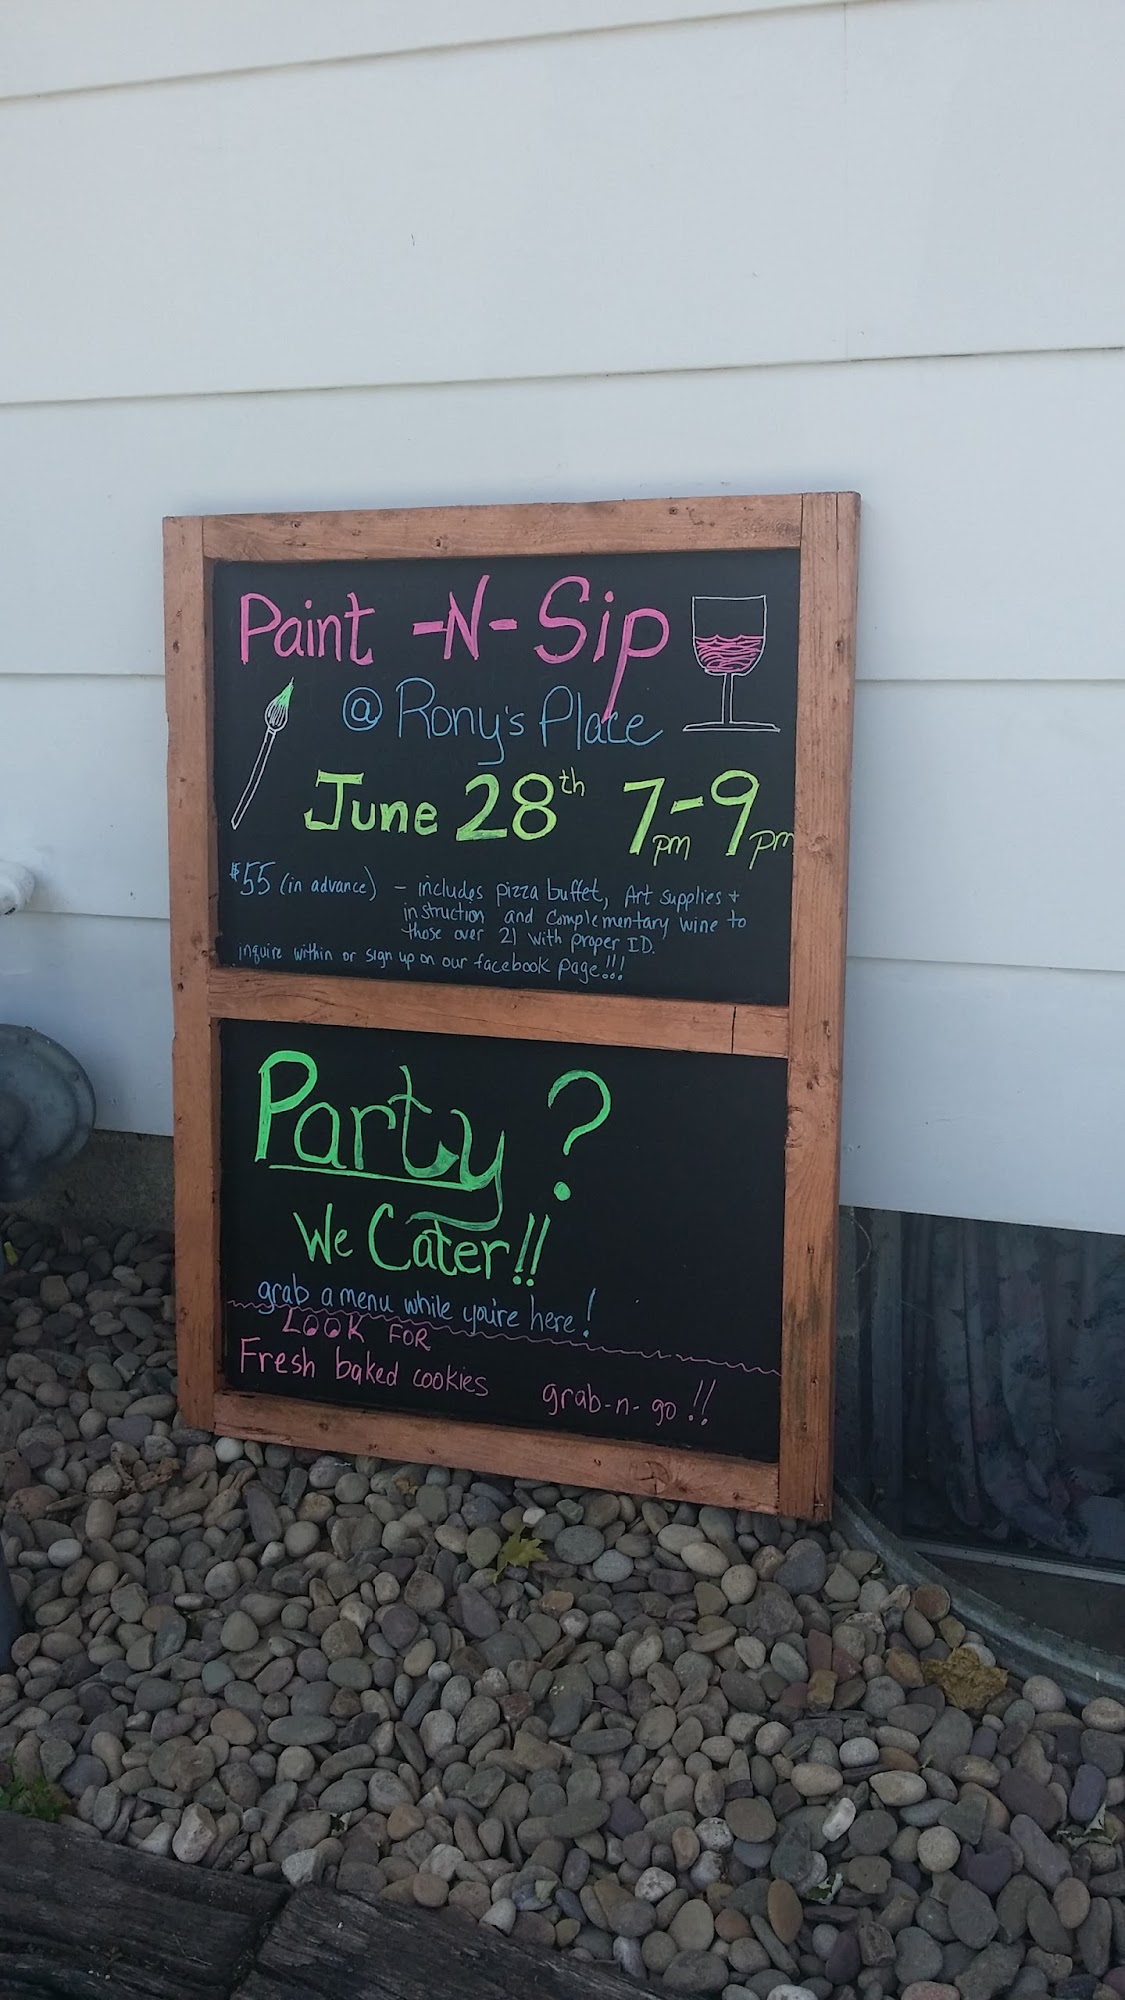 Paint -N- Sip
@ Rony's Place
June 28th 7pm-9pm
$55 (in advance) - includes pizza buffet, Art supplies +
instruction and complementary wine to
those over 21 with proper ID.
inquire within or sign up on our facebook page!!!
Party?
We Cater!!
grab a menu while you're here!
LOOK FOR
Fresh baked cookies grab-n-go!!